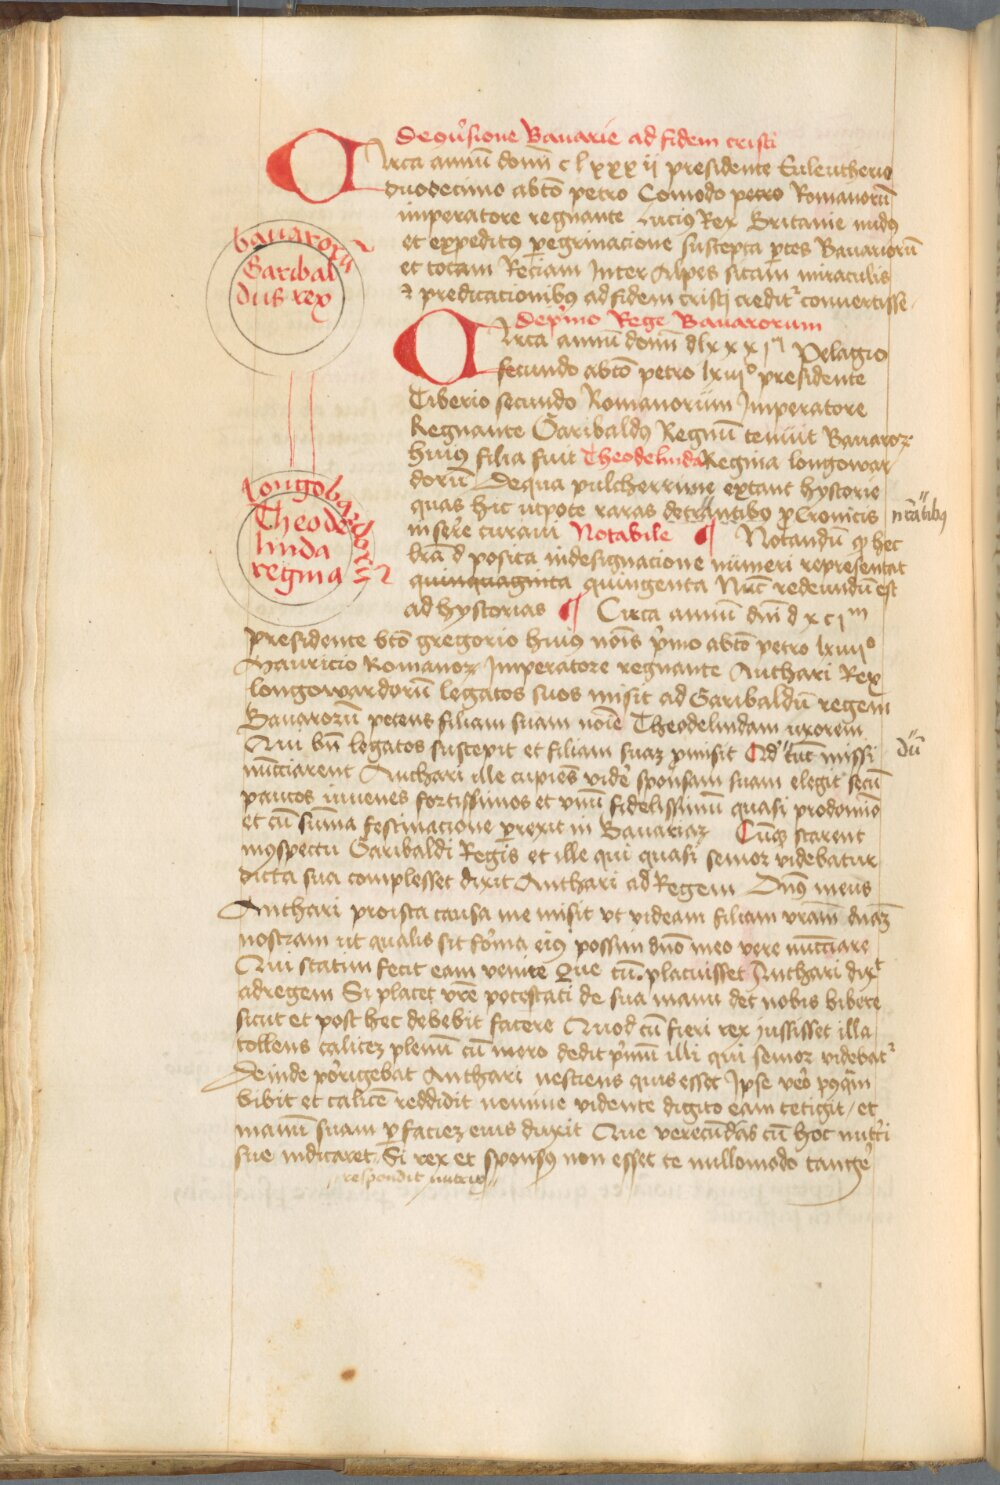 De co͞uersione Bauarie ad fidem cristi
Circa annu͞ domi͞ clxxxij presidente Euleutherio
duodecimo abco͞ petro Comodo petro Romanoru͞
imperatore regnante Lucius Rex Britanie nudus
et expeditus pegrinacione suscepta ptes Bauarioru͞
et totam Reciam Inter Alpes sitam miraculis
& predicationibus ad fidem cristi creditr conuertisse
De pimo Rege Bauarorum
Circa annu͞ domi͞ dlxxxjm Pelagio
secundo abco͞ petro lxiijo presidente
Tiberio secundo Romanorum Imperatore
Regnante Garibaldus Regnu͞ tenuit Bauaroꝝ
huius filia fuit Theodelinda Regina longowar
doru͞ De qua pulcherrime extant hystorie
quas hic utpote raras detrantibus p Cronicis
inserere curaui Notabile ¶ Notandu͞ ꝙ hec
l͞ra d posita in designacione numeri representat
quinquaginta quingenta Nu͞c redeundu͞ est
ad hystorias ¶ Circa annu͞ dni͞ dxcjm
presidente bco͞ gregorio huius no͞is pimo abco͞ petro lxiiijo
Mauricio Romanoꝝ Imperatore regnante Anthari Rex
longowardoru͞ legatos suos misit ad Garibaldu͞ regem
Bauaroru͞ petens filiam suam noi͞e Theodelindam uxorem
Qui bn͞ legatos suscepit et filiam suaꝫ pmisit Qd' cu͞ missi
nu͞cciarent Anthari ille cupiens videre sponsam suam elegit secu͞
paucos iuuenes fortissimos et vnu͞ fidelissimu͞ quasi prodomio͞
et cu͞ su͞ma festinacione perrexit in Bauariaꝫ Cu͞qꝫ starent
in conspectu Garibaldi Regis et ille qui quasi senior videbatur
dicta sua complesset dixit Anthari ad Regem Dn͞s meus
Anthari pro ista causa me misit vt videam filiam vra͞m dn͞aꝫ
nostram ut qualis sit forma eius possim dn͞o meo vere nu͞cciare
Qui statim fecit eam venire Que cu͞ placuisset Anthari dixt
ad regem Si placet vr͞e potestati de sua manu det nobis bibere
sicut et post hec debebit facere Quod cu͞ fieri rex iussisset illa
tollens caliceꝫ plenu͞ cu͞ mero dedit pimu͞ illi qui senior videbatr
Deinde porigebat Anthari nesciens quis esset Ipse vero posqm͞
bibit et calice͞ reddidit nemine vidente digito eam tetigit / et
manu͞ suam p facieꝫ eius duxit Que verecundas cu͞ hoc nutrici
sue indicaret Si rex et sponsus non esset te nullomodo tangeret
respondit nutrix
bauaroru͞
Garibal
dus rex
longobardoru͞
Theode
linda
regina
du͞